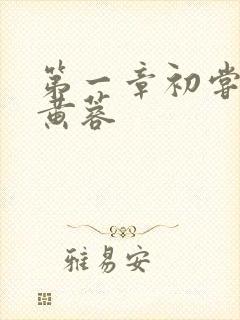 第一章初尝
黄蓉
雅易安